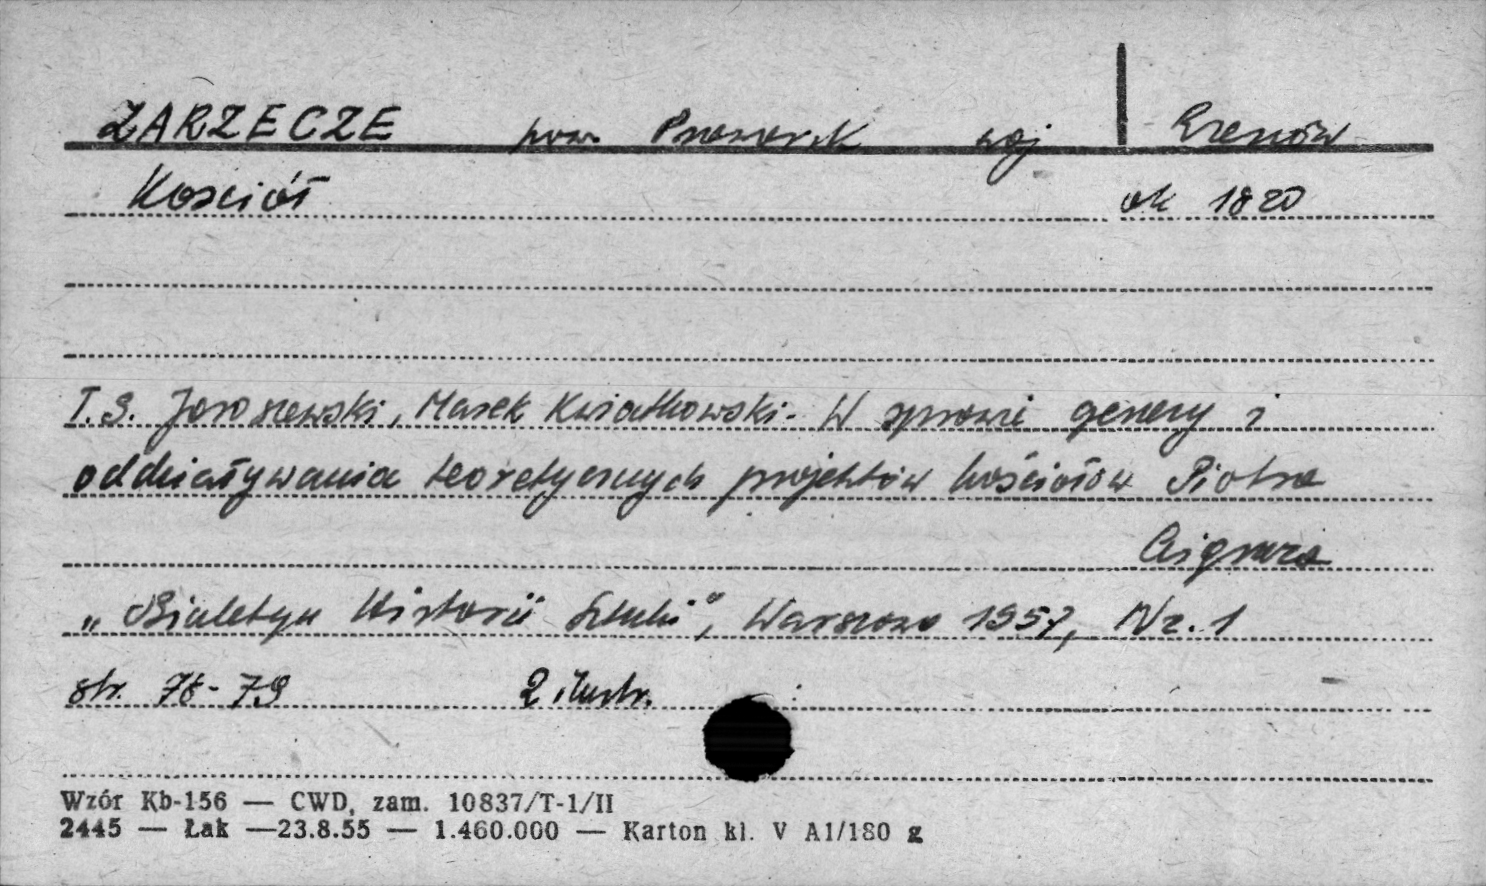 ZARZECZE pow. Przeworsk woj Rzeszów
Kościół ok 1820
T.S. Jaroszewski, Marek Kwiatkowski - W sprawie genezy i
oddziaływania teoretycznych projektów kościołów Piotra
Aignera
„Biuletyn Historii Sztuki", Warszawa 1957, Nr. 1
str. 78-79 2 ilustr.
Wzór Kb-156 — CWD, zam. 10837/T-1/II
2445 — Łak —23.8.55 — 1.460.000 — Karton kl. V A1/180 g